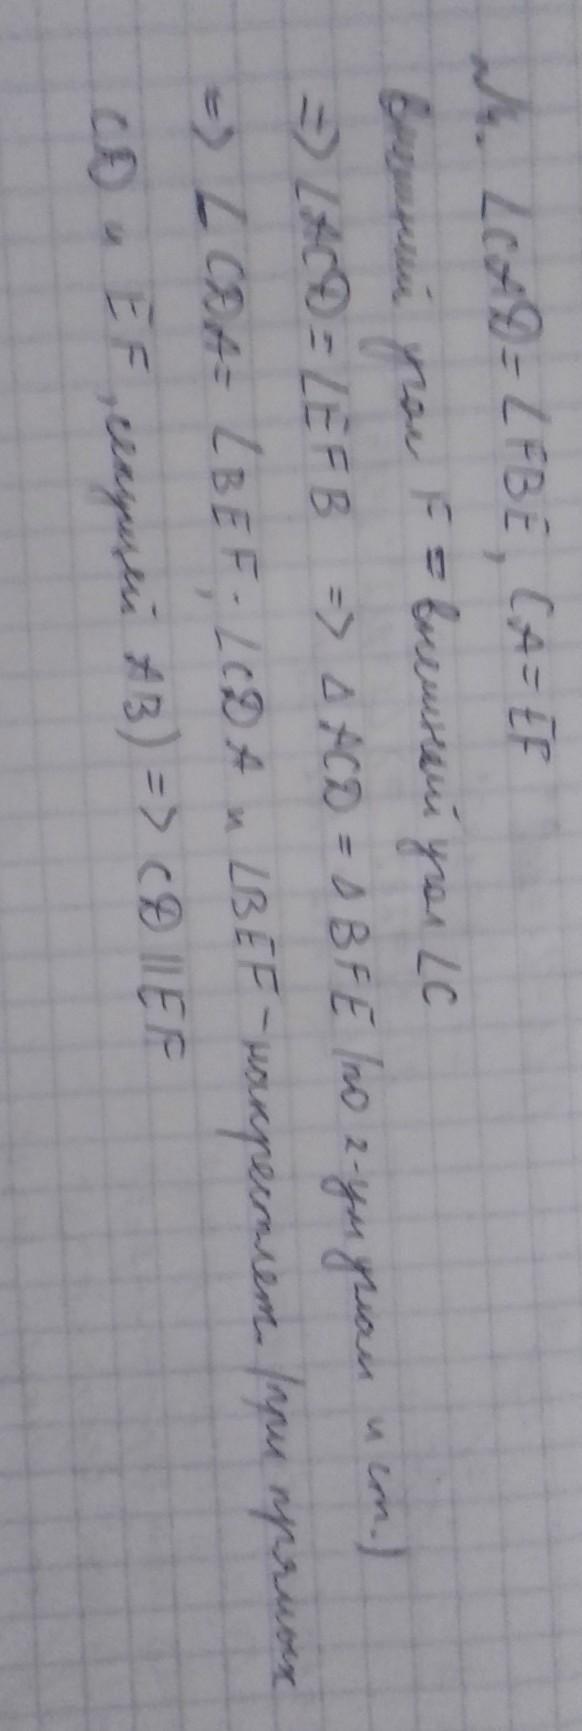 №4. ∠CAD = ∠FBE, CA = EF
внешний угол F = внешний угол ∠C
=> ∠ACD = ∠EFB => Δ ACD = Δ BFE (по 2-ум углам и ст.)
=> ∠CDA = ∠BEF, ∠CDA и ∠BEF - накрестлеж. (при прямых
CD и EF, секущей AB) => CD || EF